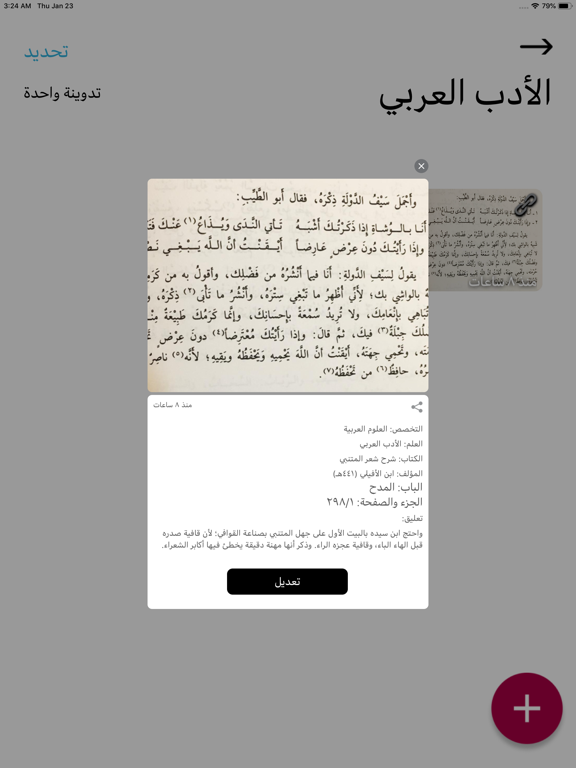 3:24 AM Thu Jan 23
79%
تحديد
الأدب العربي
تدوينة واحدة
وأَجْمَلَ سَيْفُ الدَّوْلَةِ ذِكْرَهُ، فقال أبو الطَّيِّبِ:
أَنَا بالـوُشَاةِ إِذَا ذَكَرْتُكَ أَشْبَهُ تَأتي النَّدَى وَيُـذَاعُ (١) عَنْكَ
وإِذَا رَأَيْتُكَ دُونَ عِرْضٍ عَارِضـاً أَيْـقَنْتُ أَنَّ اللَّه يَـبْـغِـي
يقولُ لِسَيْفِ الدَّولَةِ: أَنَا فيما أَنْشُرُهُ من فَضْلِك، وأَقولُ به من
بالواشِي بك؛ لأَنِّي أُظْهِرُ ما تَبْغي سِتْرَهُ، وأَنْشُرُ ما تَأْبَى (٢) ذِكْرَهُ،
بإِنْعامِكَ، ولا تُرِيدُ سُمْعَةً بإِحْسَانِكَ، وإِنَّمَا كَرَمُكَ طَبِيعَةٌ
جِبِلَّةٌ (٣) فيكَ، ثمَّ قالَ: وإِذا رَأَيْتُكَ مُعْتَرِضاً (٤) دونَ عِرْضٍ
وتَحْمِي جِهَتَهُ، أَيْقَنْتُ أَنَّ اللَّهَ يَحْمِيهِ وَيَحْفَظُهُ ويَقِيهِ؛ لأَنَّه (٥) ناصِرٌ
حافِظٌ (٦) من تَحْفَظُهُ (٧).
منذ ٨ ساعات
منذ ٨ ساعات
التخصص: العلوم العربية
العلم: الأدب العربي
الكتاب: شرح شعر المتنبي
المؤلف: ابن الأفيلي (٤٤١هـ)
الباب: المدح
الجزء والصفحة: ٢٩٨/١
تعليق:
واحتج ابن سيده بالبيت الأول على جهل المتنبي بصناعة القوافي؛ لأن قافية صدره
قبل الهاء الباء، وقافية عجزه الراء. وذكر أنها مهنة دقيقة يخطئ فيها أكابر الشعراء.
تعديل